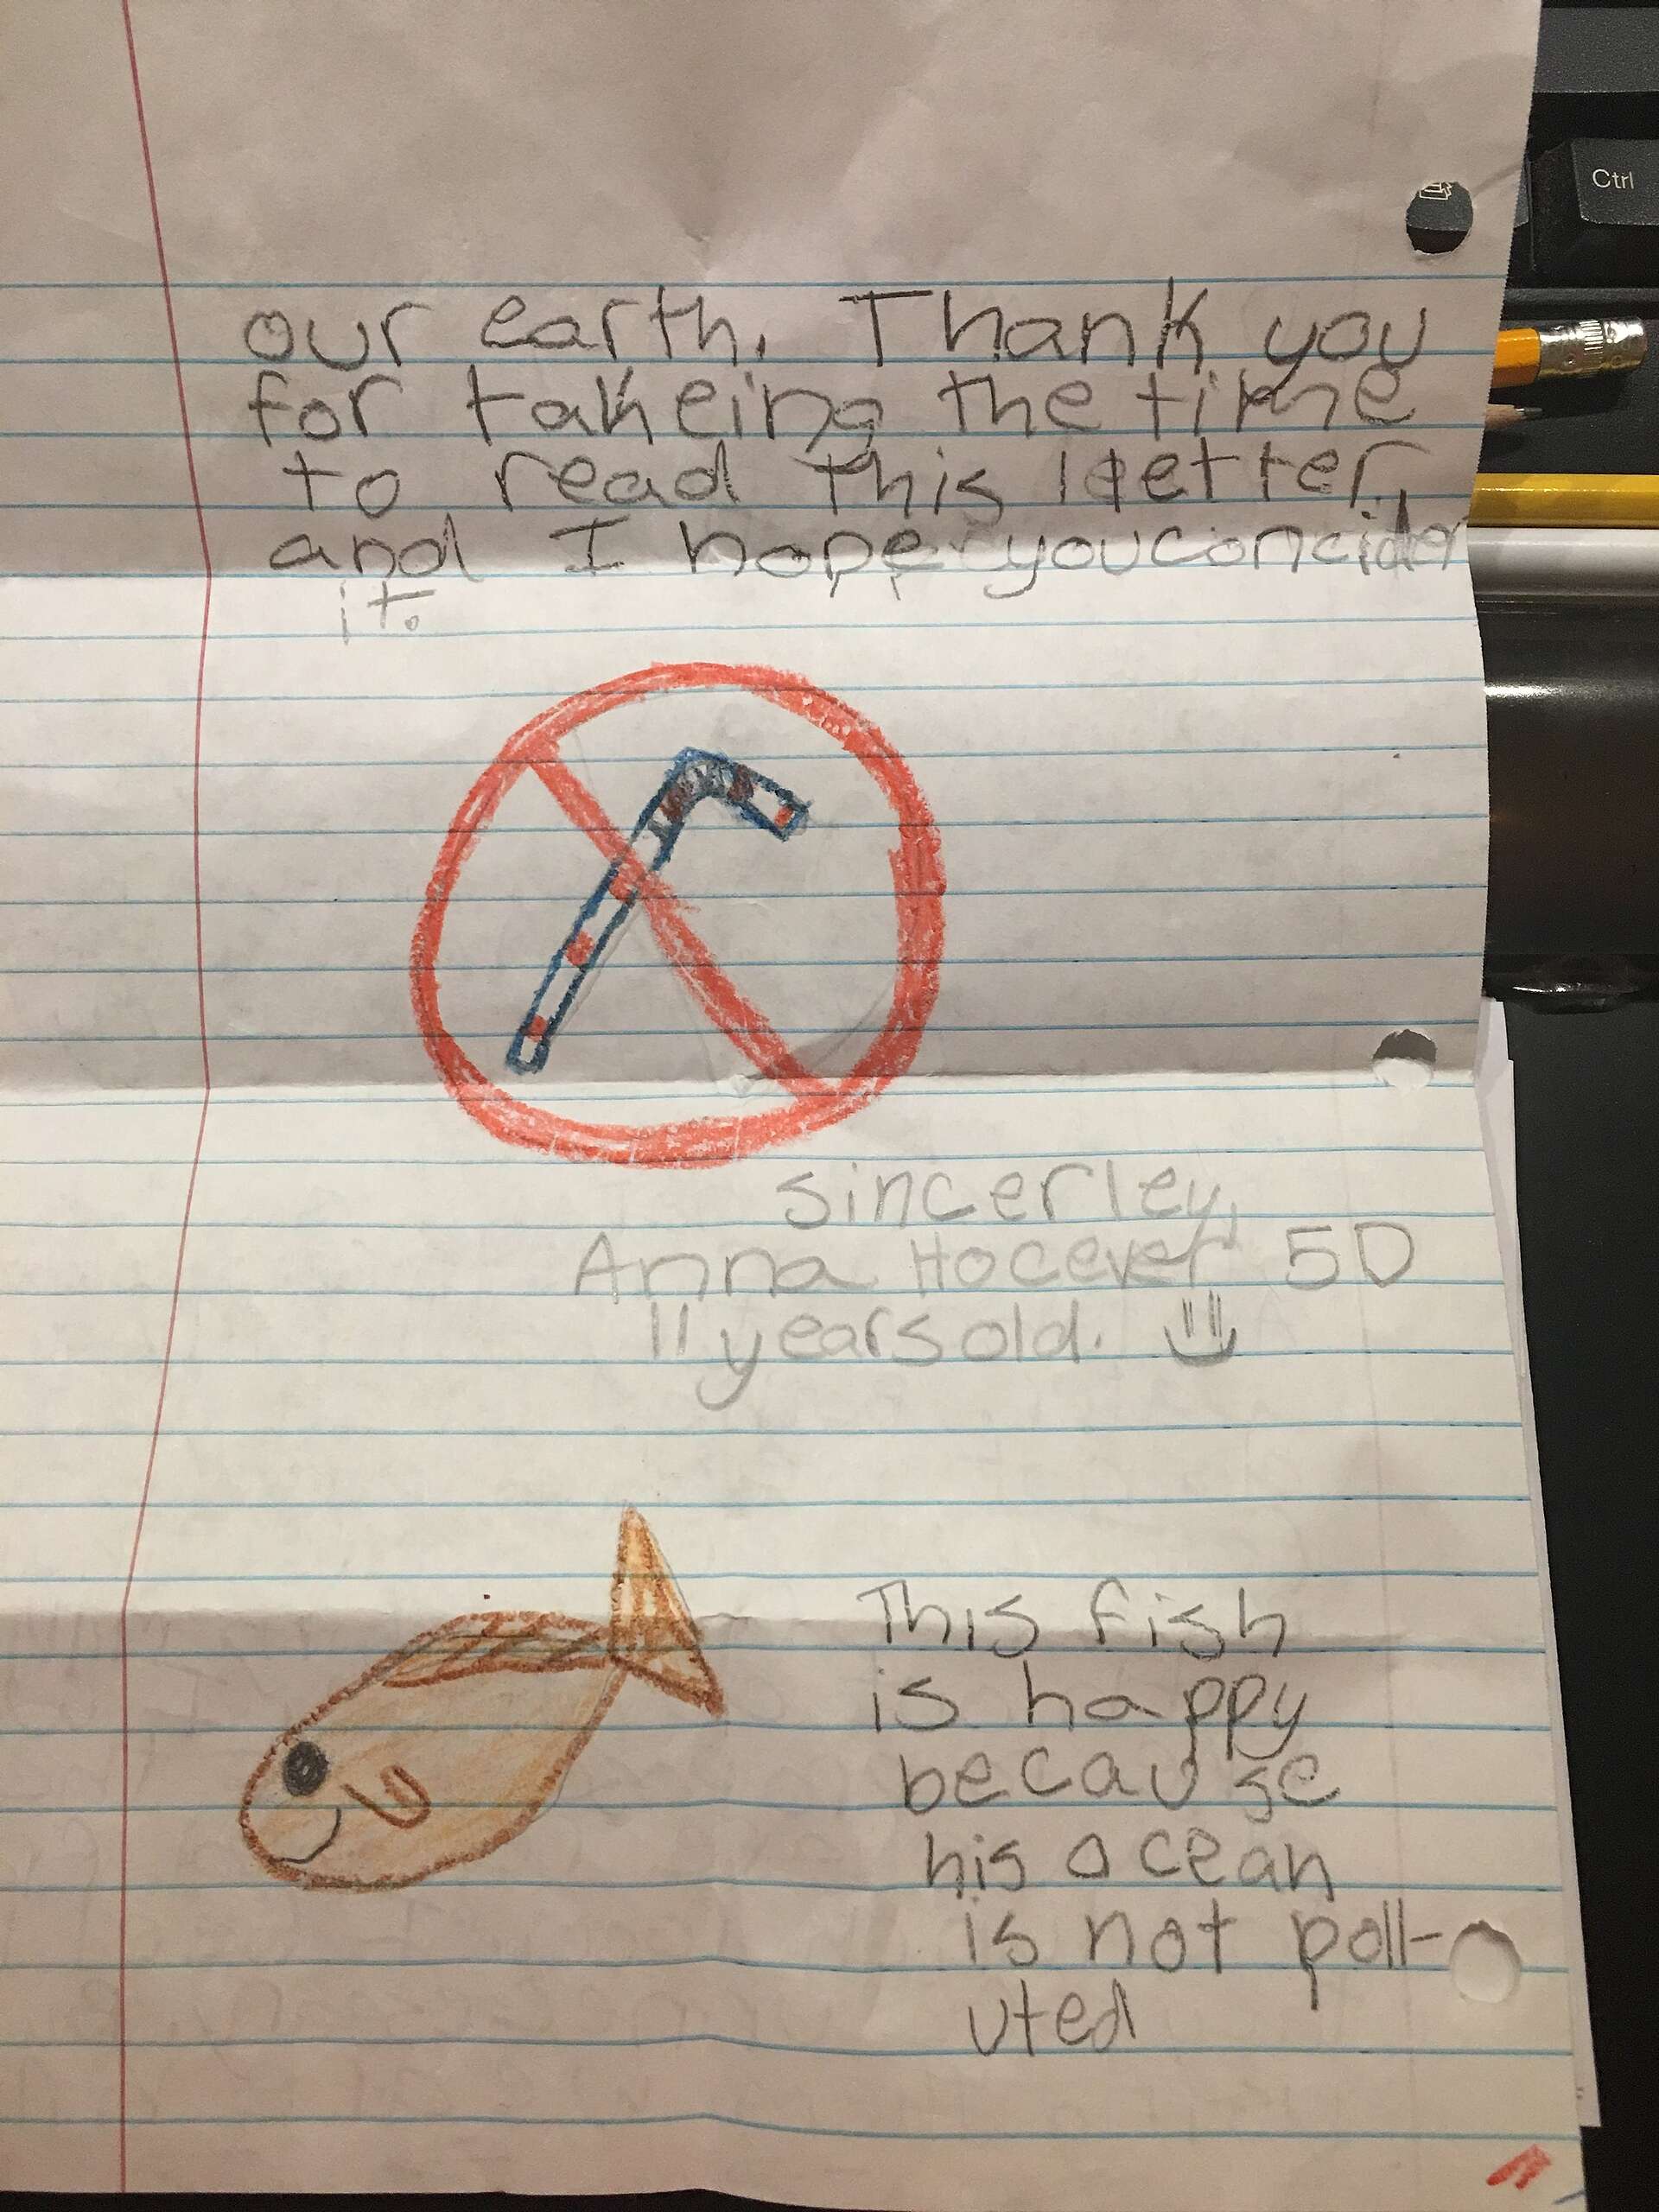 Ctrl
our earth. Thank you
for takeing the time
to read this letter,
and I hope you concider
it.
sincerley,
Anna Hocever 5D
11 years old.
This fish
is happy
because
his ocean
is not poll-
uted